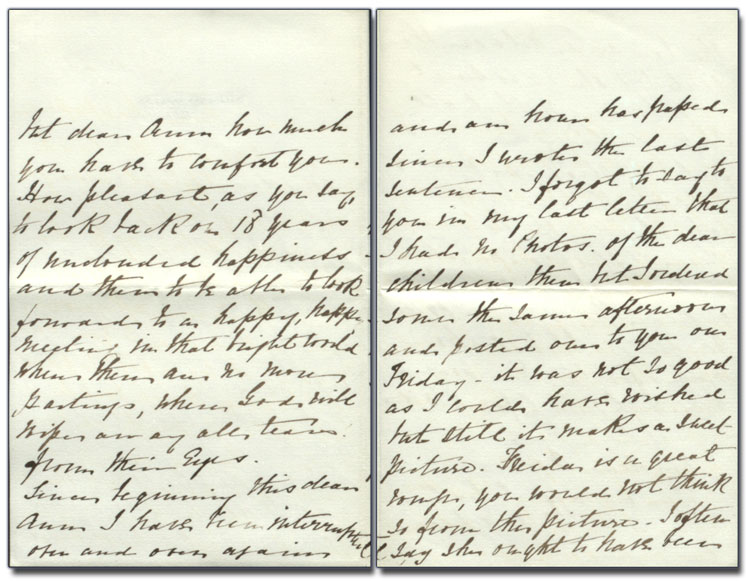 but dear Anna how much
you have to comfort you.
How pleasant, as you say,
to look back on 18 years
of unclouded happiness
and then to be able to look
forward to a happy, happy
meeting in that bright world
where there are no more
partings, where God will
wipe away all tears
from their Eyes.
Since beginning this dear
Anna I have been interrupted
over and over again
and an hour has passed
since I wrote the last
sentence. I forgot to say to
you in my last letter that
I had no Photos. of the dear
children then but I ordered
some the same afternoon
and posted one to you on
Friday - it was not so good
as I could have wished
but still it makes a sweet
picture. Freida is a great
romp, you would not think
so from the picture - I often
say she ought to have been